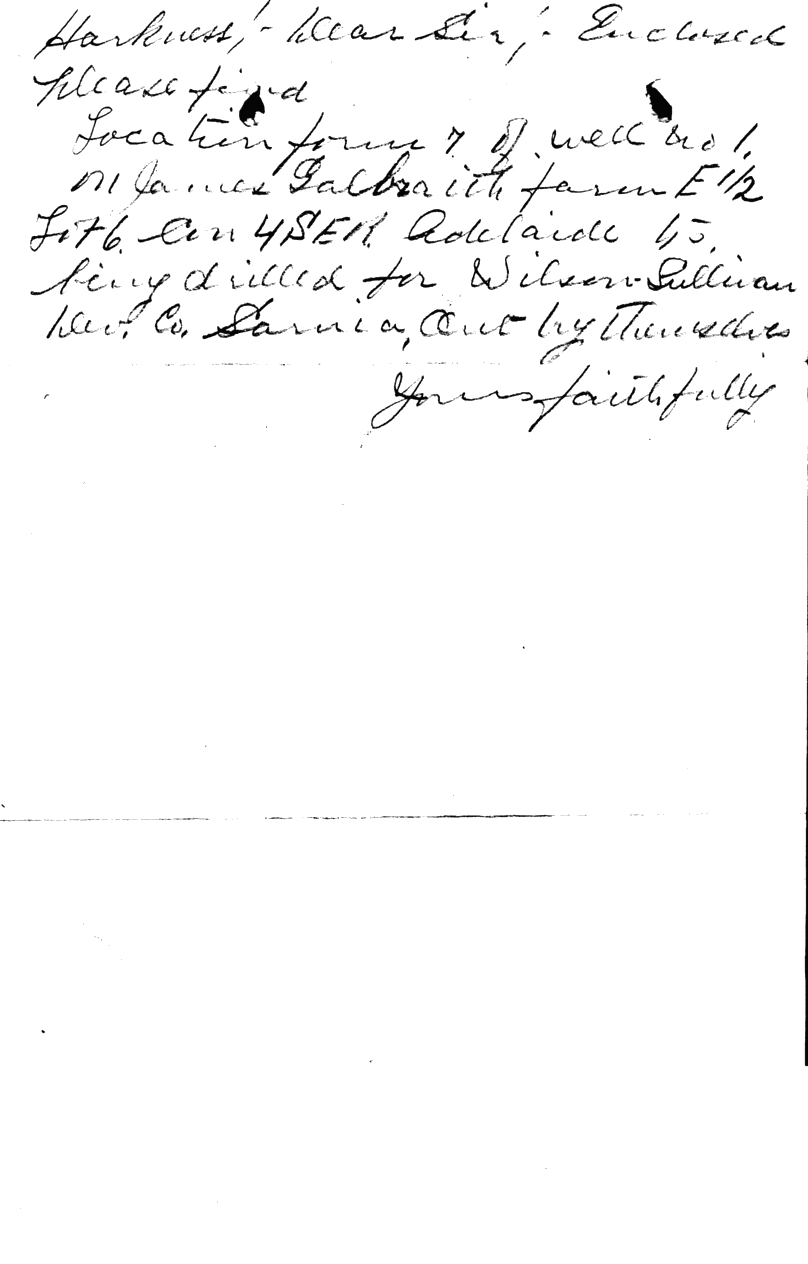 Harkness,- Dear Sir,- Enclosed
please find
Location form 7 of well no 1.
on James Galbraith farm E 1/2
Lot 6. Con 4 S E R. Adelaide Tp.
being drilled for Wilson-Sullivan
Dev. Co. Sarnia, Ont by themselves
Yours faithfully